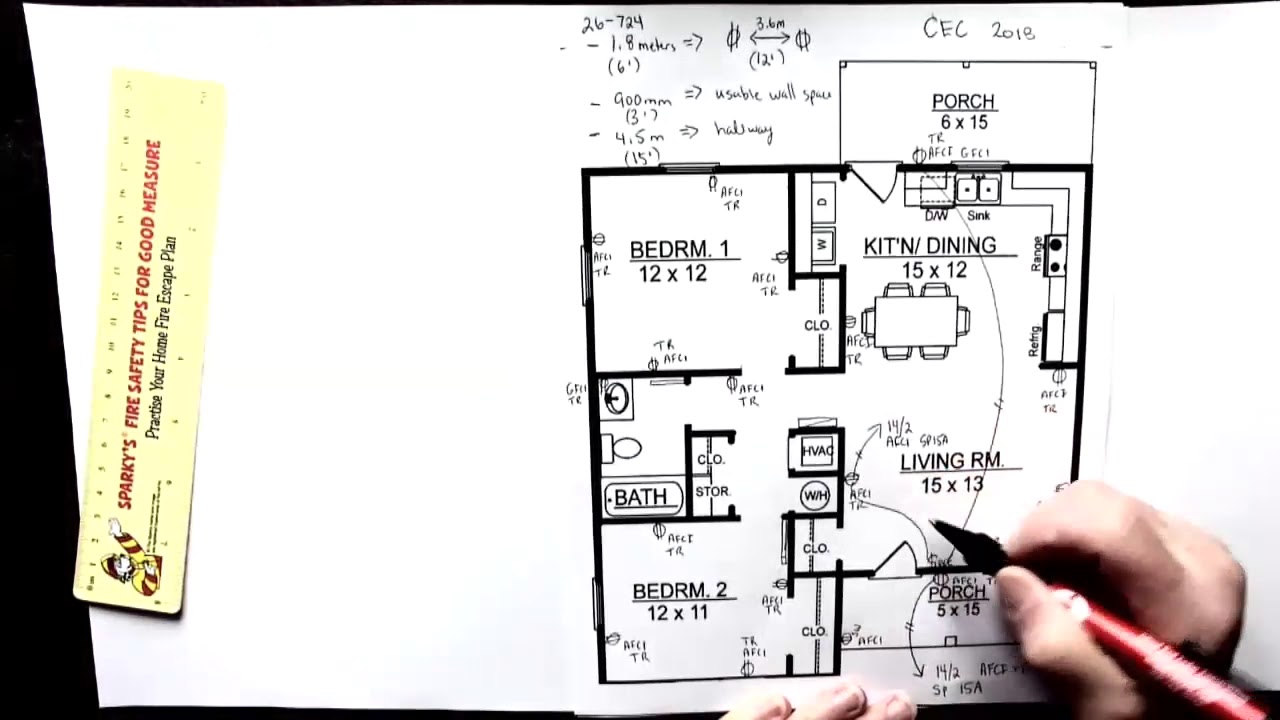 26-724
- 1.8 meters => 3.6m
(6') (12')
- 900mm => usable wall space
(3')
- 4.5m => hallway
(15')
CEC 2018
SPARKY'S® FIRE SAFETY TIPS FOR GOOD MEASURE
Practise Your Home Fire Escape Plan
PORCH
6 x 15
TR
AFCI GFCI
AFCI
TR
D
W
D/W
Sink
BEDRM. 1
12 x 12
KIT'N/ DINING
15 x 12
Range
AFCI
TR
AFCI
TR
CLO.
Refrig
AFCI
TR
TR
AFCI
GFCI
TR
AFCI
TR
AFCI
TR
14/2
AFCI SP15A
HVAC
CLO.
LIVING RM.
15 x 13
BATH
STOR.
W/H
AFCI
TR
AFCI
TR
CLO.
BEDRM. 2
12 x 11
AFCI
TR
AFCI
PORCH
5 x 15
CLO.
AFCI
AFCI
TR
TR
AFCI
14/2 AFCI
SP 15A